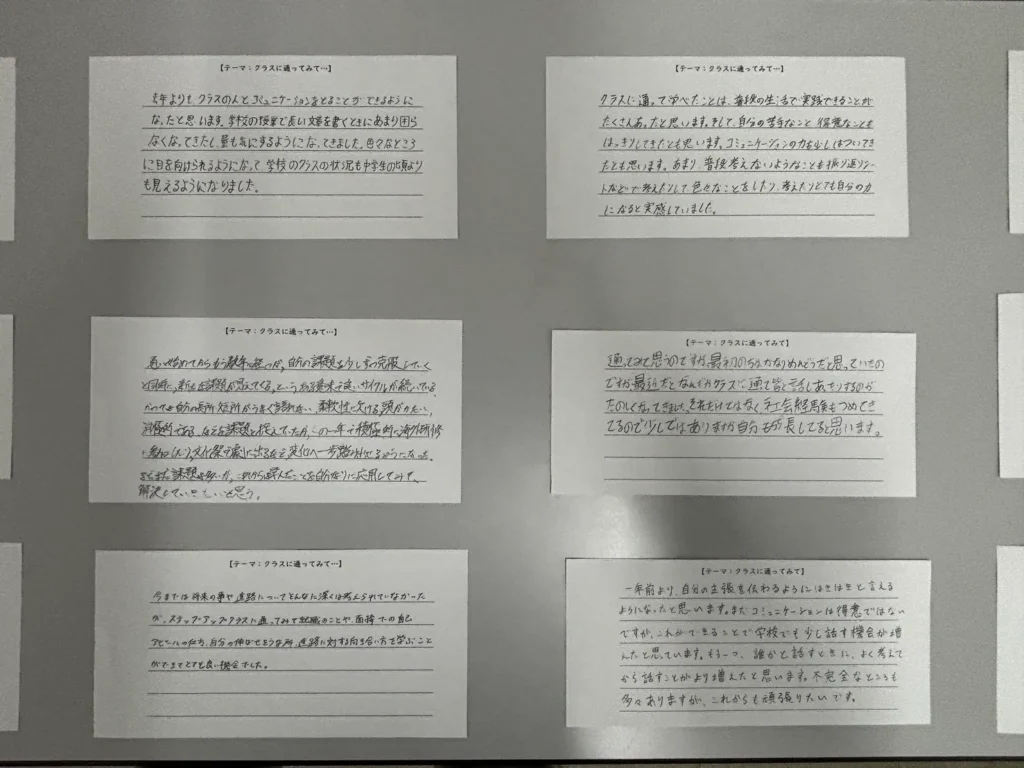 【テーマ：クラスに通ってみて…】
去年よりも、クラスの人とコミュニケーションをとることができるように
なったと思います。学校の授業で長い文章を書くときにあまり困ら
なくなってきたし、量も気にするようになってきました。色々なところ
に目を向けられるようになって、学校のクラスの状況も中学生の頃より
も見えるようになりました。
【テーマ：クラスに通ってみて…】
クラスに通って学べたことは、普段の生活で実践できることが
たくさんあったと思います。そして、自分の苦手なこと、得意なことも
はっきりしてきたとも思います。コミュニケーションの力も少しはついてき
たとも思います。あまり、普段考えないようなことも振り返りシ
ートなどで考えたりして色々なことをしたり、考えたりとても自分の力
になると実感していました。
【テーマ：クラスに通ってみて…】
通い始めてから もう 経つが、自分の課題を少しずつ克服していく
と同時に、新たな課題が見えてくる、という ある意味 サイクルが続いている。
自分の長所 短所がうまく 柔軟性に欠ける 頭がかたい、
消極的である、などを課題と捉えていたが、この一年で積極的に海外研修
に参加 したり、文化祭で 出るなど 変化へ一歩踏み出せるようになった。
まだまだ課題は多いが、これから学んだことを自分なりに応用してみて、
解決していきたいと思う。
【テーマ：クラスに通ってみて】
通ってみて思うのですが、最初のうちはかなりめんどうだと思っていたの
ですが最近だとなんだかクラスに通って皆と話しあったりするのが
たのしくなってきまして、それだけではなく社会経験もつめてき
てるので少しではありますが自分も成長してると思います。
【テーマ：クラスに通ってみて…】
今までは将来の事や進路についてどんなに深くは考えられていなかった
が、ステップ・アップクラスに通ってみて就職のことや、面接での自己
アピールのだし方、自分の伸ばせそうな所、進路に対する向き合い方を学ぶこと
ができてとても良い機会でした。
【テーマ：クラスに通ってみて】
一年前より、自分の主張を伝わるようにはきはきと言える
ようになったと思います。まだコミュニケーションは得意ではない
ですが、これができることで学校でも少し話す機会が増
えたと思っています。もう一つ、誰かと話すときに、よく考えて
から話すことがより増えたと思います。不完全なところも
多々ありますが、これからも頑張りたいです。